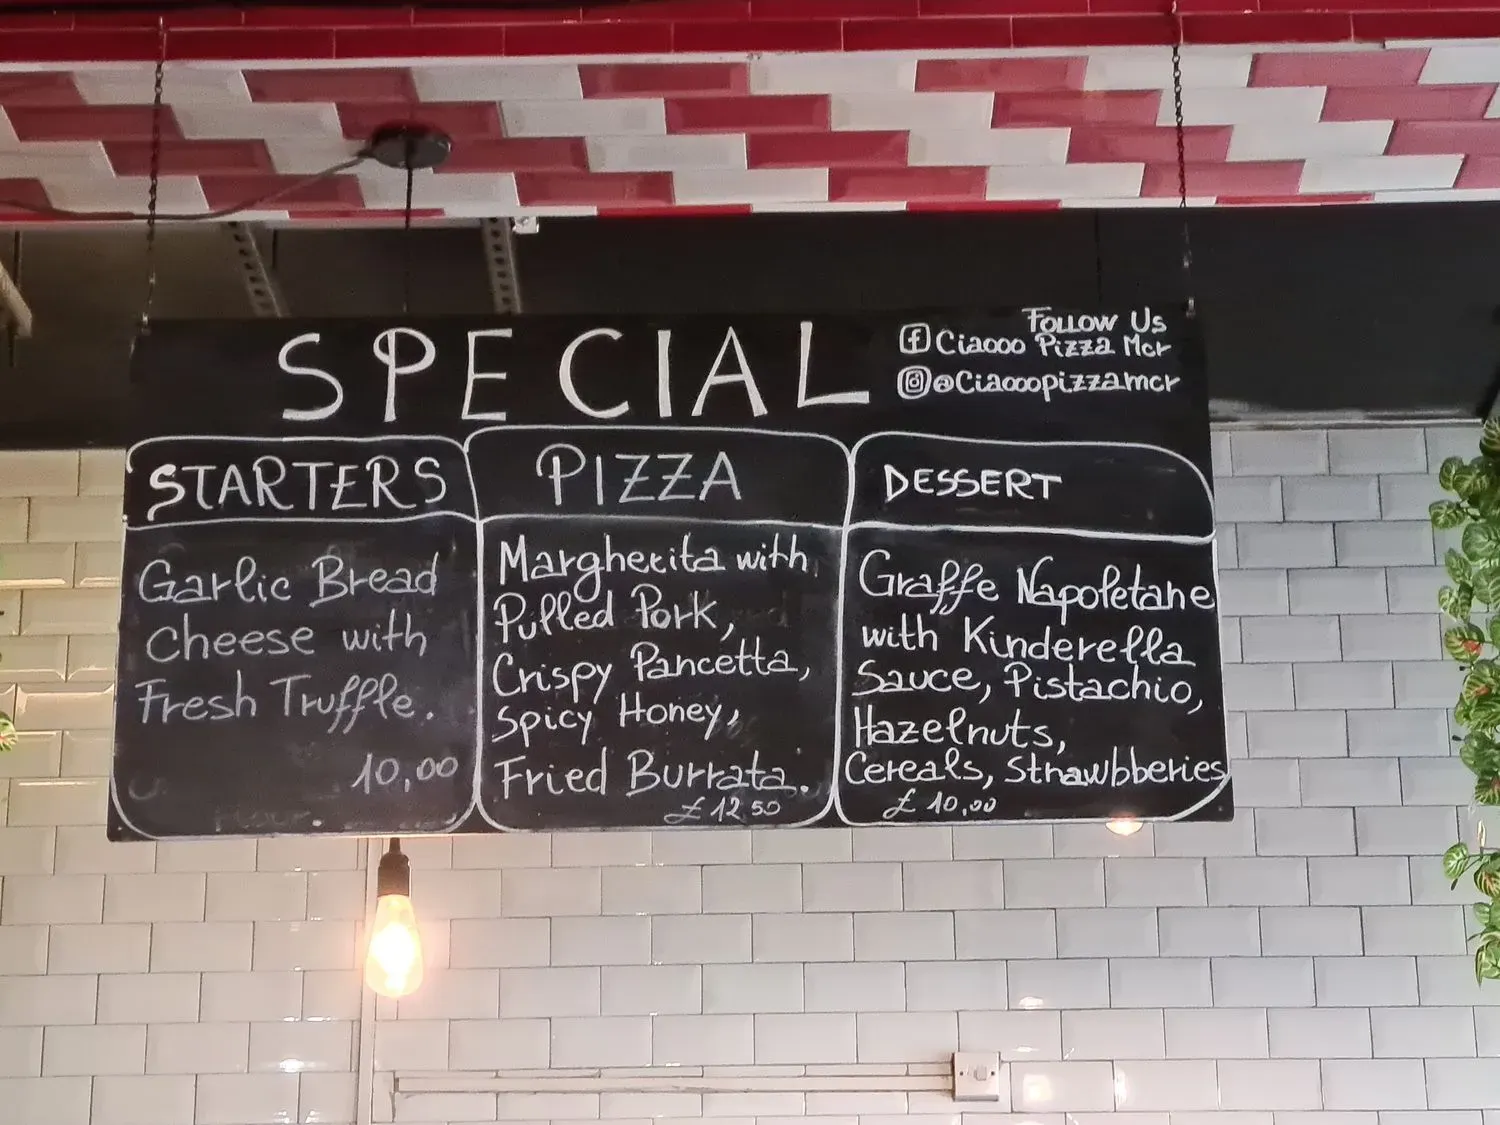 SPECIAL
Follow Us
Ciaooo Pizza Mcr
@Ciaooopizzamcr
STARTERS
Garlic Bread
Cheese with
Fresh Truffle.
10,00
PIZZA
Margherita with
Pulled Pork,
Crispy Pancetta,
Spicy Honey,
Fried Burrata.
£ 12,50
DESSERT
Graffe Napoletane
with Kinderella
Sauce, Pistachio,
Hazelnuts,
Cereals, Strawbberies
£ 10,00